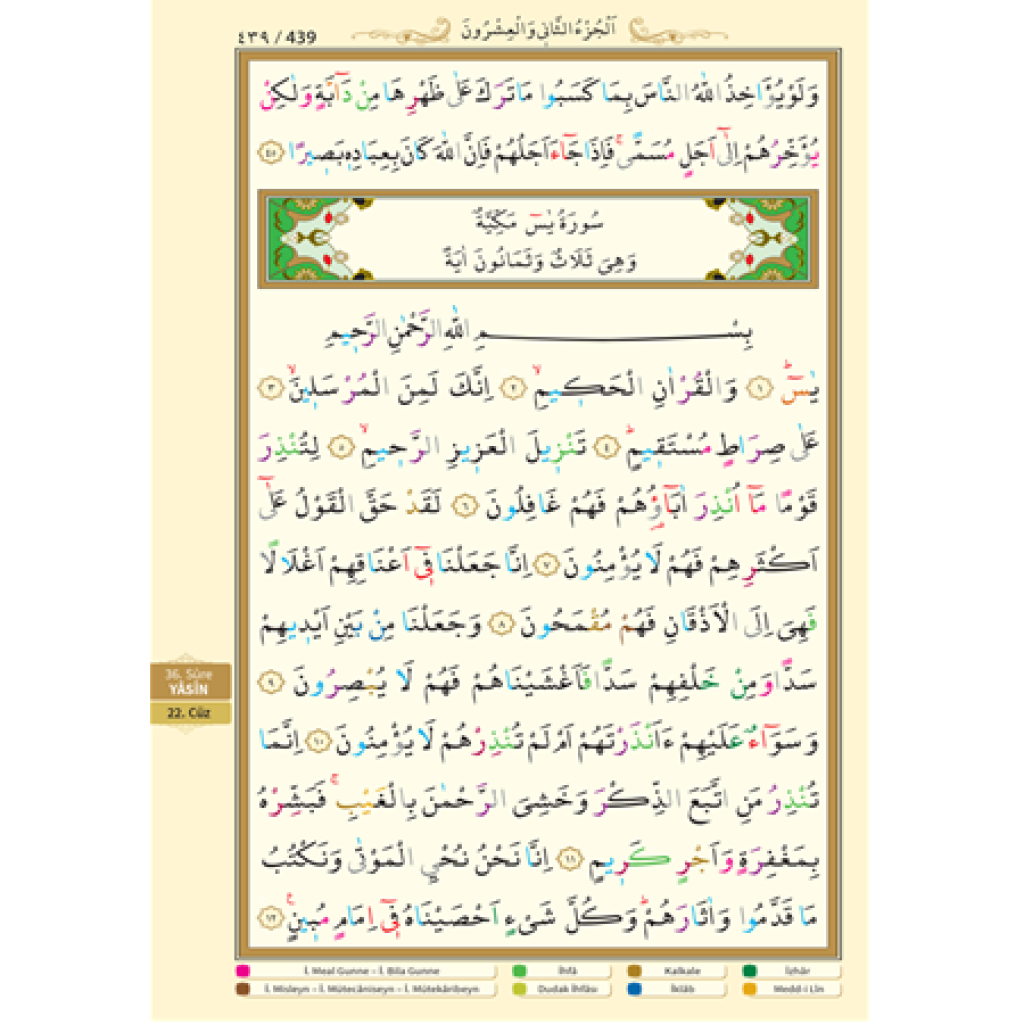 ٤٣٩ / 439
اَلْجُزْءُ الثَّانِي وَالْعِشْرُونَ
وَلَوْ يُؤَاخِذُ اللّٰهُ النَّاسَ بِمَا كَسَبُوا مَا تَرَكَ عَلٰى ظَهْرِهَا مِنْ دَٓابَّةٍ وَلٰكِنْ
يُؤَخِّرُهُمْ اِلٰٓى اَجَلٍ مُسَمًّىۚ فَاِذَا جَٓاءَ اَجَلُهُمْ فَاِنَّ اللّٰهَ كَانَ بِعِبَادِه۪ بَص۪يرًا ﴿٤٥﴾
سُورَةُ يٰسٓ مَكِّيَّةٌ
وَهِيَ ثَلَاثٌ وَثَمَانُونَ اٰيَةً
بِسْمِ اللّٰهِ الرَّحْمٰنِ الرَّح۪يمِ
يٰسٓۜ ﴿١﴾ وَالْقُرْاٰنِ الْحَك۪يمِۙ ﴿٢﴾ اِنَّكَ لَمِنَ الْمُرْسَل۪ينَۙ ﴿٣﴾
عَلٰى صِرَاطٍ مُسْتَق۪يمٍۜ ﴿٤﴾ تَنْز۪يلَ الْعَز۪يزِ الرَّح۪يمِۙ ﴿٥﴾ لِتُنْذِرَ
قَوْمًا مَٓا اُنْذِرَ اٰبَٓاؤُ۬هُمْ فَهُمْ غَافِلُونَ ﴿٦﴾ لَقَدْ حَقَّ الْقَوْلُ عَلٰٓى
اَكْثَرِهِمْ فَهُمْ لَا يُؤْمِنُونَ ﴿٧﴾ اِنَّا جَعَلْنَا ف۪ٓي اَعْنَاقِهِمْ اَغْلَالًا
فَهِيَ اِلَى الْاَذْقَانِ فَهُمْ مُقْمَحُونَ ﴿٨﴾ وَجَعَلْنَا مِنْ بَيْنِ اَيْد۪يهِمْ
سَدًّا وَمِنْ خَلْفِهِمْ سَدًّا فَاَغْشَيْنَاهُمْ فَهُمْ لَا يُبْصِرُونَ ﴿٩﴾
وَسَوَٓاءٌ عَلَيْهِمْ ءَاَنْذَرْتَهُمْ اَمْ لَمْ تُنْذِرْهُمْ لَا يُؤْمِنُونَ ﴿١٠﴾ اِنَّمَا
تُنْذِرُ مَنِ اتَّبَعَ الذِّكْرَ وَخَشِيَ الرَّحْمٰنَ بِالْغَيْبِۚ فَبَشِّرْهُ
بِمَغْفِرَةٍ وَاَجْرٍ كَر۪يمٍ ﴿١١﴾ اِنَّا نَحْنُ نُحْيِ الْمَوْتٰى وَنَكْتُبُ
مَا قَدَّمُوا وَاٰثَارَهُمْۜ وَكُلَّ شَيْءٍ اَحْصَيْنَاهُ ف۪ٓي اِمَامٍ مُب۪ينٍ۟ ﴿١٢﴾
36. Sûre
YÂSÎN
22. Cüz
İ. Meal Gunne – İ. Bila Gunne
İhfâ
Kalkale
İzhâr
İ. Misleyn – İ. Mütecâniseyn – İ. Mütekâribeyn
Dudak İhfâsı
İklâb
Medd-i Lîn